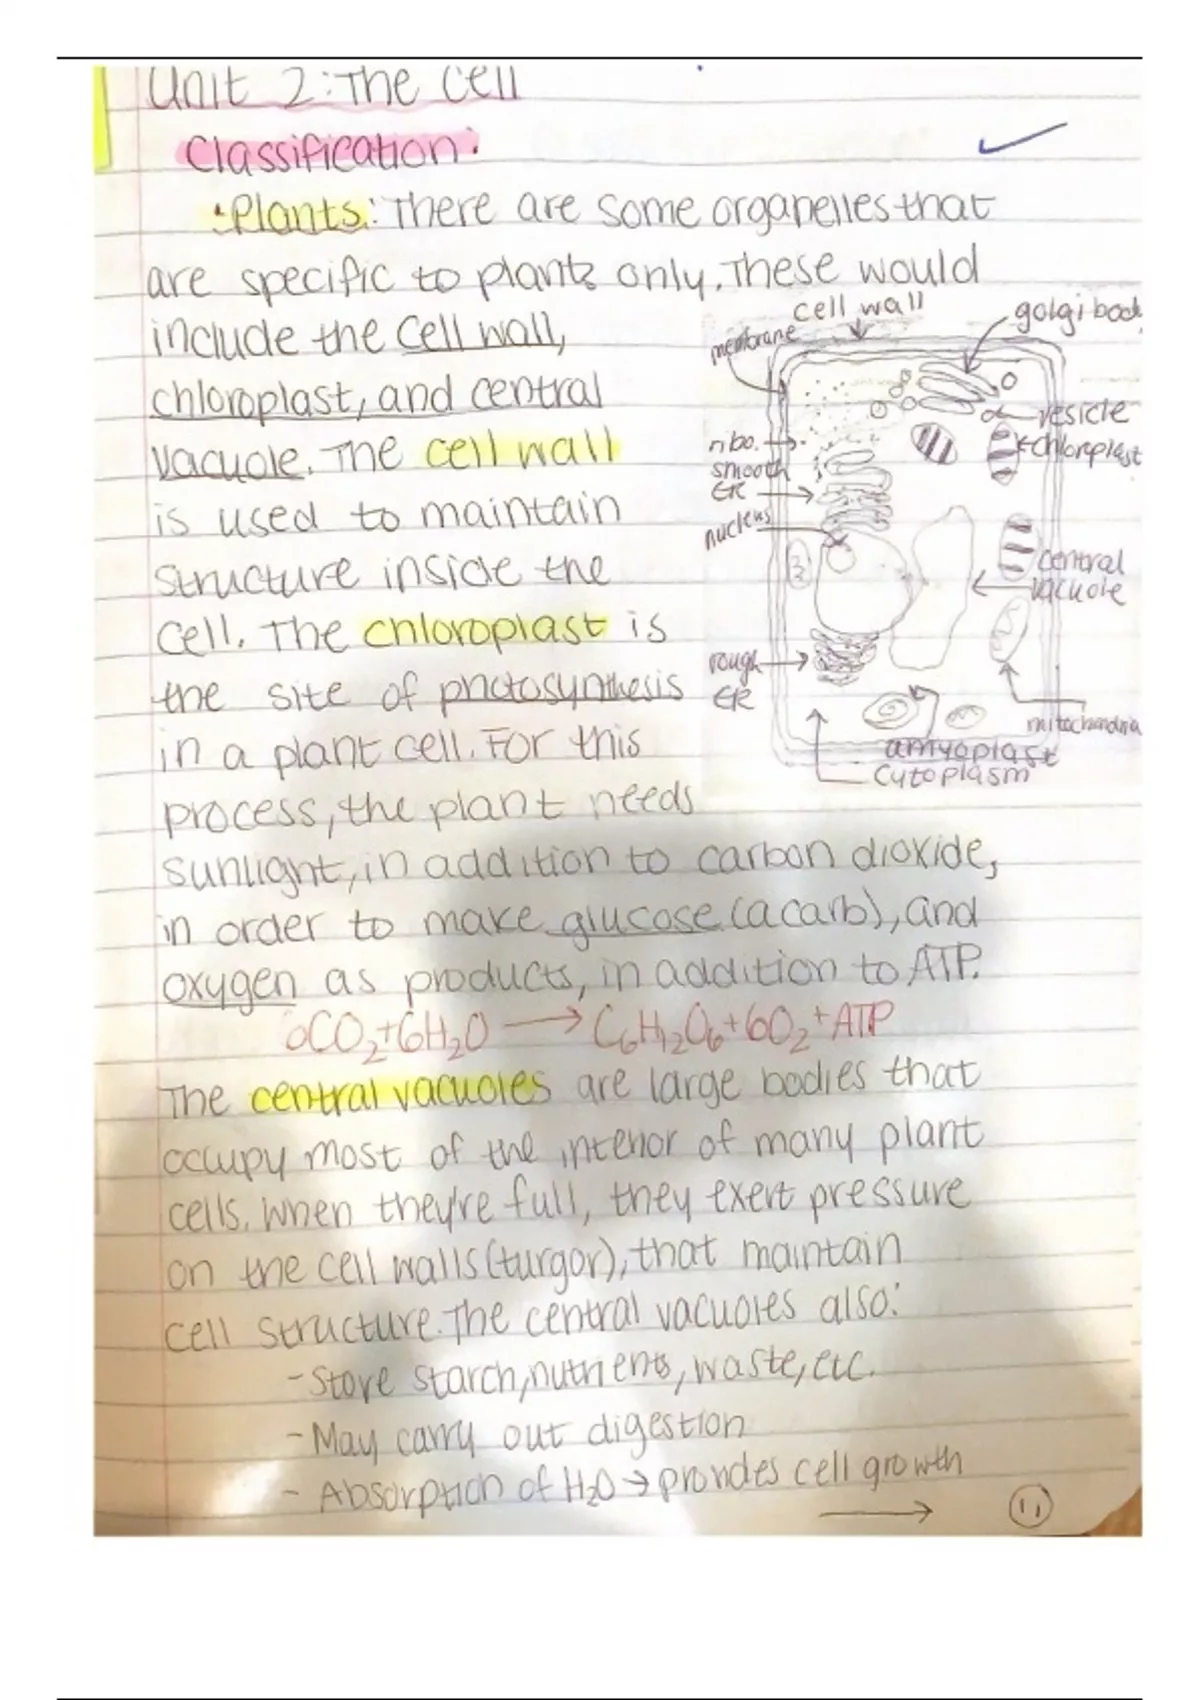 Unit 2: The Cell
Classification:
• Plants: There are some organelles that
are specific to plants only. These would
include the cell wall,
chloroplast, and central
vacuole. The cell wall
is used to maintain
structure inside the
cell. The chloroplast is
the site of photosynthesis
in a plant cell. For this
process, the plant needs
sunlight, in addition to carbon dioxide,
in order to make glucose (a carb), and
oxygen as products, in addition to ATP.
6CO₂+6H₂O → C₆H₁₂O₆+6O₂+ATP
The central vacuoles are large bodies that
occupy most of the interior of many plant
cells. When they're full, they exert pressure
on the cell walls (turgor), that maintain
cell structure. The central vacuoles also:
- Store starch, nutrients, waste, etc.
- May carry out digestion
- Absorption of H₂O → provides cell growth
→ 11
cell wall
golgi bod
membrane
vesicle
ribo.
chloroplast
smooth
ER
nucleus
central
vacuole
rough
ER
mitochondria
amyoplast
cytoplasm